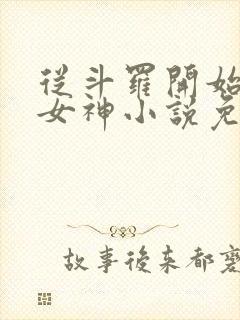 從斗羅開始
女神小說免
故事後來都